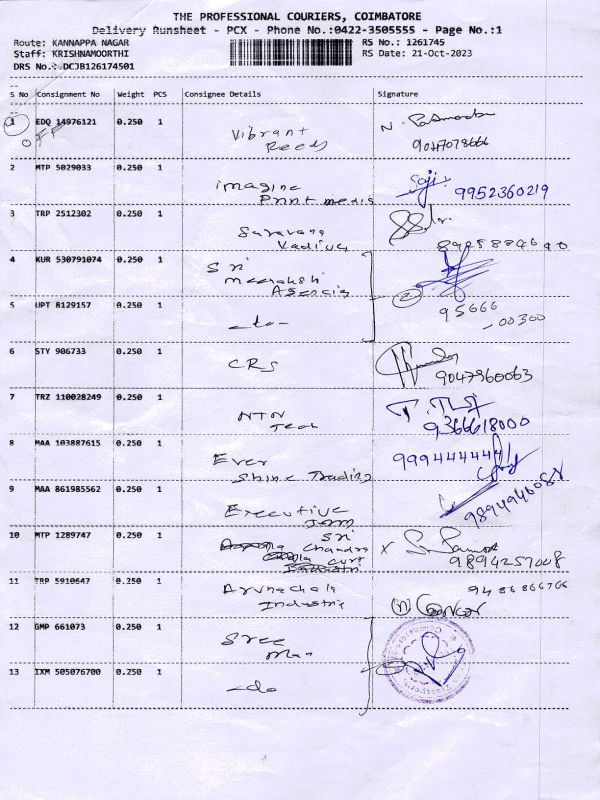 THE PROFESSIONAL COURIERS, COIMBATORE
Delivery Runsheet - PCX - Phone No.:0422-3505555 - Page No.:1
Route: KANNAPPA NAGAR RS No.: 1261745
Staff: KRISHNAMOORTHI RS Date: 21-Oct-2023
DRS No.: DCJB126174501
S No Consignment No Weight PCS Consignee Details Signature
1 EDQ 14976121 0.250 1 Vibrant
Reeds 9047078666
2 MTP 5029033 0.250 1 imagine Saji
Print media 9952360219
3 TRP 2512302 0.250 1 Saravana
Vadivu
4 KUR 530791074 0.250 1 Sri
Meenakshi
2
5 UPT 8129157 0.250 1 -do- 95666
-00300
6 STY 906733 0.250 1 CRS
9047960063
7 TRZ 110028249 0.250 1 NTN
Tech 9366618000
8 MAA 103887615 0.250 1 Ever 999444444
Shine Trading
9 MAA 861985562 0.250 1 Executive
10 MTP 1289747 0.250 1 Sri
Chandra X
9894257008
11 TRP 5910647 0.250 1 Arunachala 9486866766
Industrie
12 GMP 661073 0.250 1 Sree
Man
13 IXM 505076700 0.250 1 -do